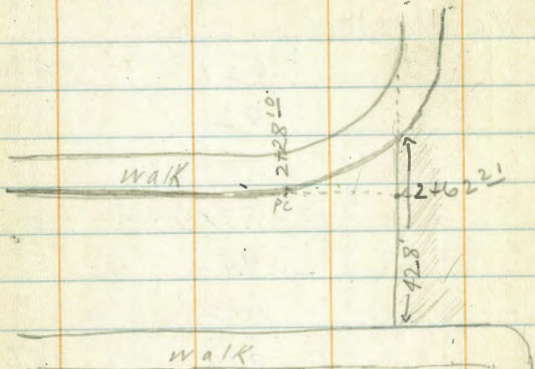 walk
PC 2+28 10
2+62 21
42.8'
walk